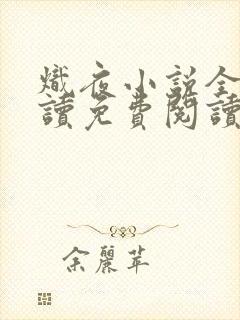 熾夜小說全
讀免費閱讀
余麗苹